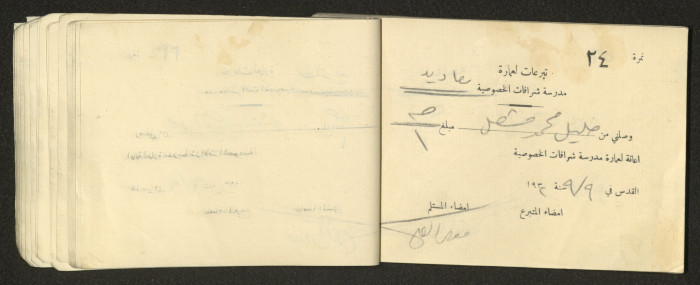 نمرة ٢٤
تبرعات لعمارة
مدرسة شرافات الخصوصية
وصلني من خليل محمد مشعل مبلغ ١
اعانة لعمارة مدرسة شرافات الخصوصية
القدس في ٩/٩ سنة ١٩٣٢
امضاء المتبرع امضاء المستلم